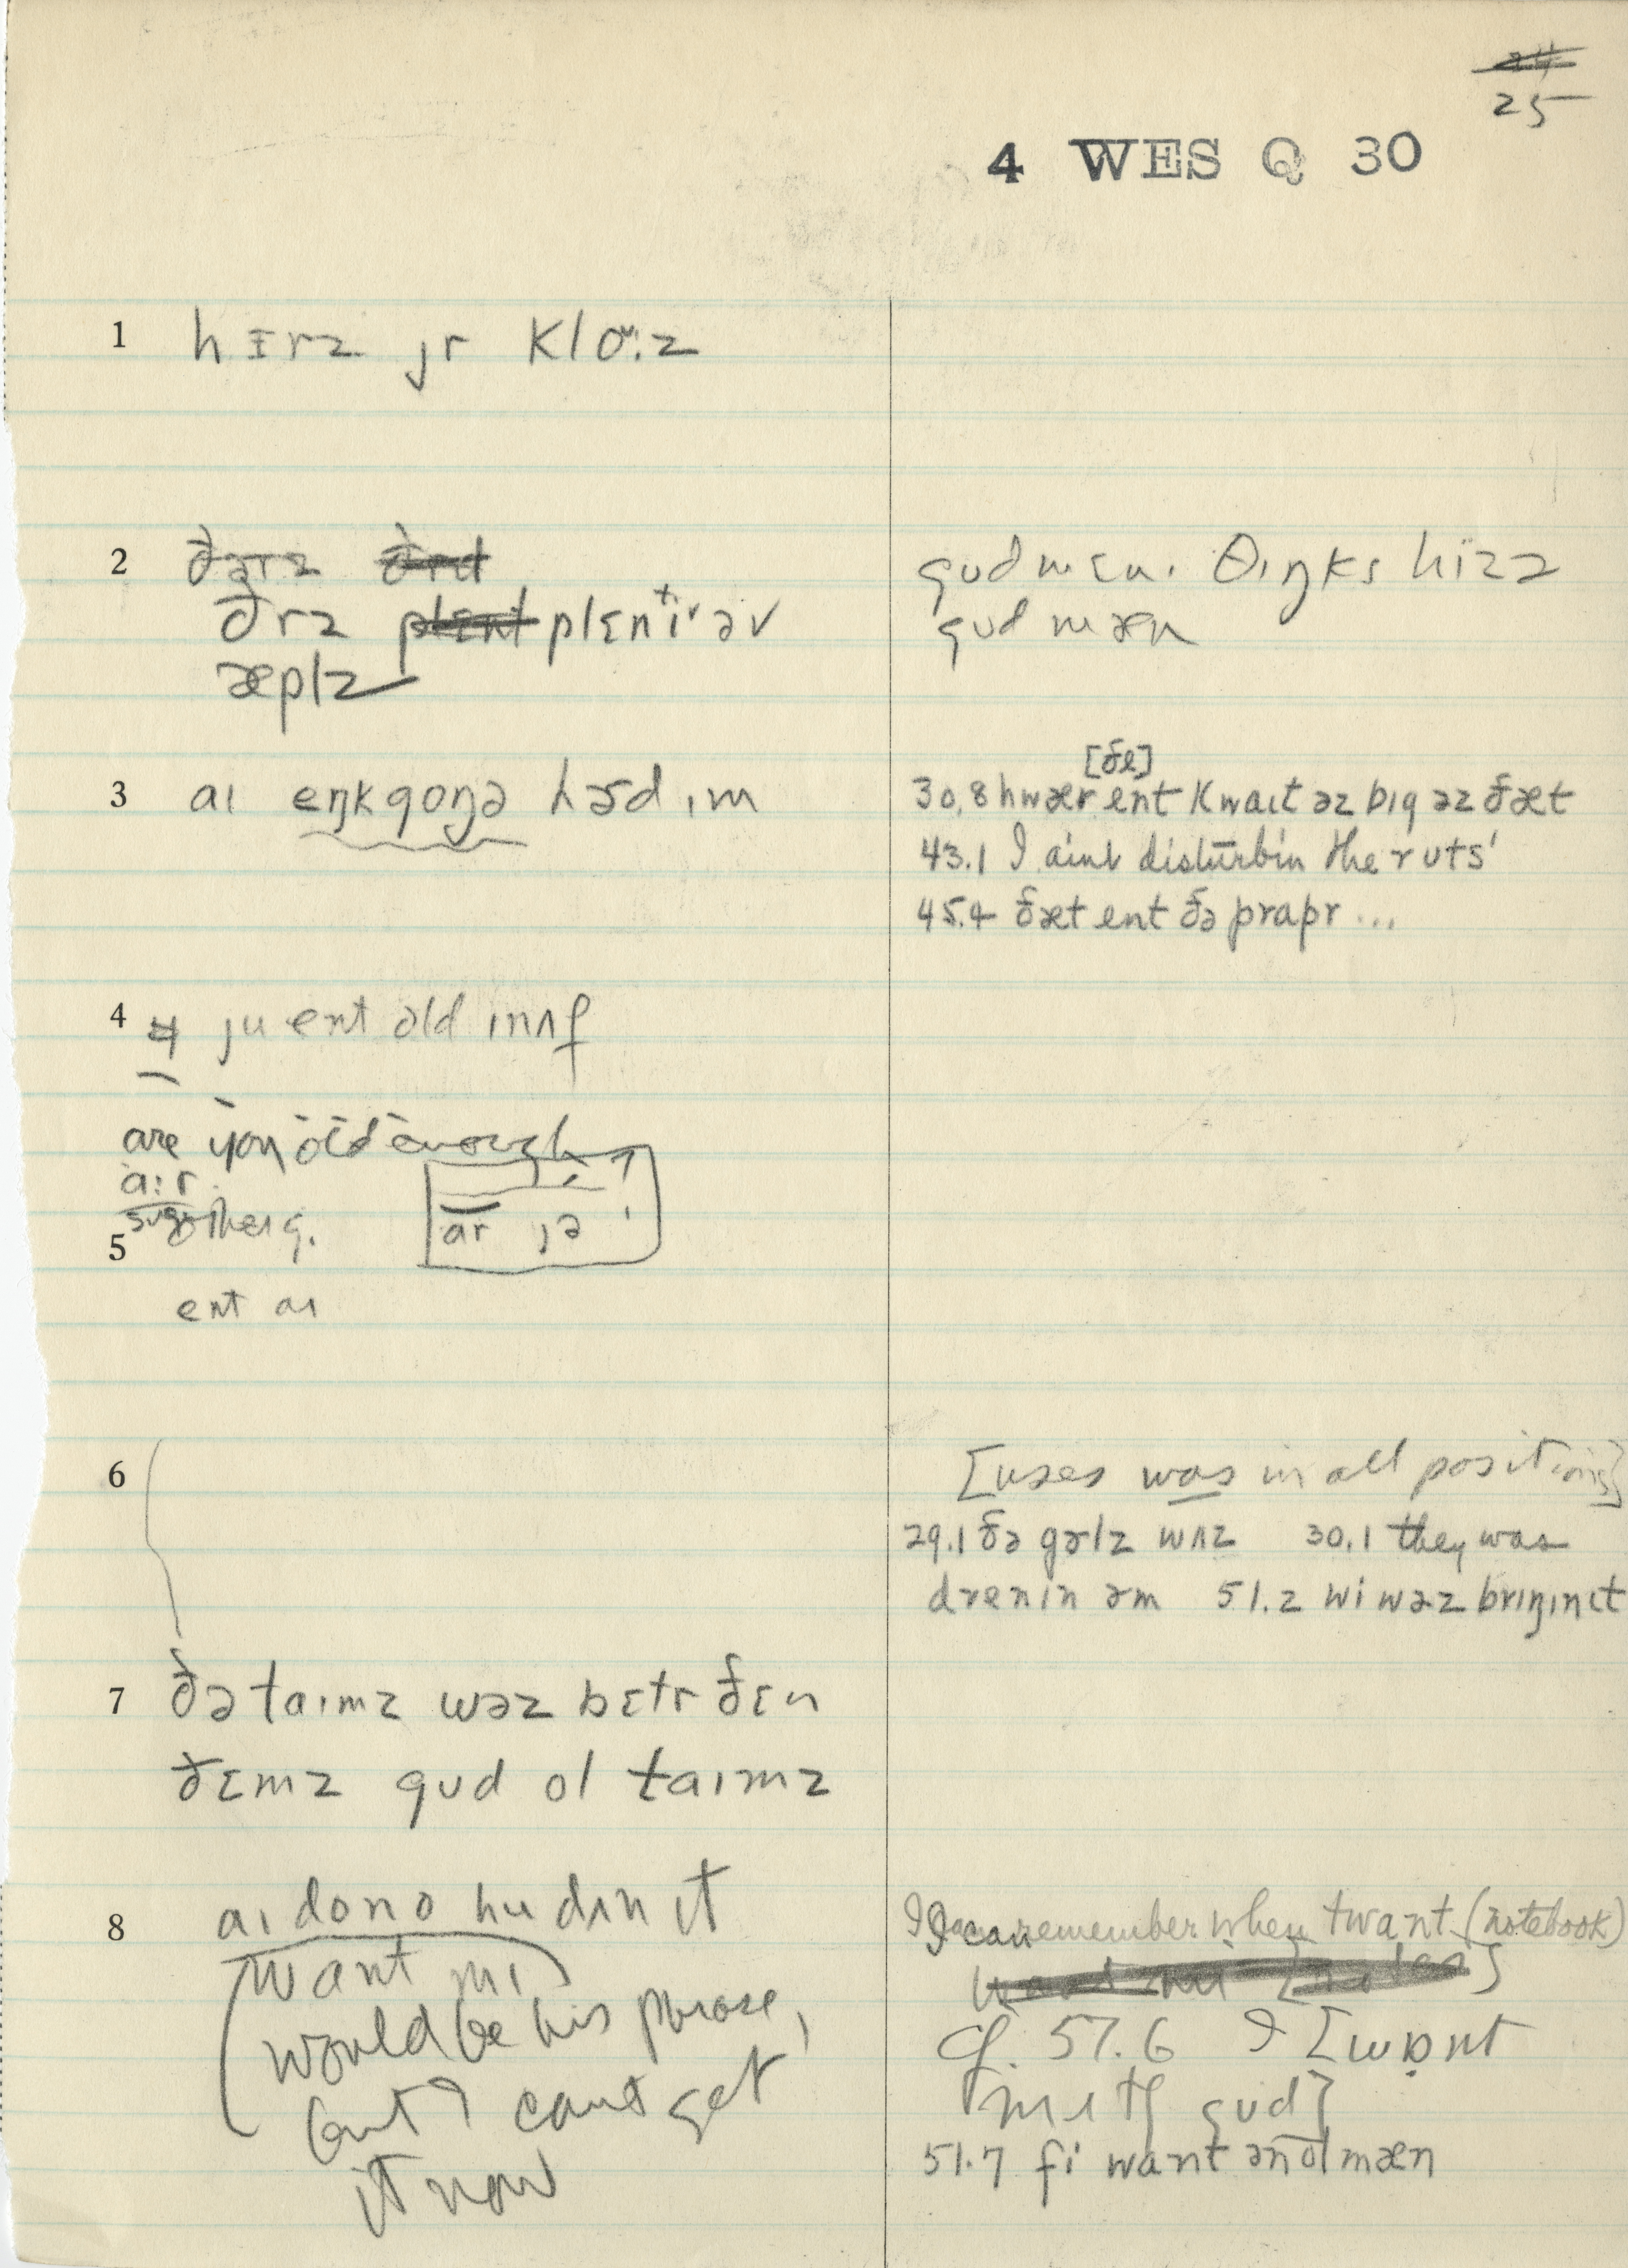 25
4 WES Q 30
1 hɪrz jr kloʷ:z
2 ðərz
ðrz plɛntiˑ əv
æplz
gʊd mɛn. θɪŋks hizz
gʊd mæn
3 aɪ eŋkgoŋə hɚd ɪm
[ðe]
30.8 hwær ent kwaɪt əz bɪg əz ðæt
43.1 I aint disturbin the rʊts'
45.4 ðæt ent ðə prapr ...
4 ju ent old ɪnʌf
are you old enough
a:r
ar jə
5
ent aɪ
6
[uses was in all positions]
29.1 ðə gɚlz wʌz 30.1 they was
drenɪn əm 51.2 wi wəz brɪŋɪn ɪt
7 ðə taɪmz wəz bɛtr ðɛn
ðɛmz gʊd ol taɪmz
8 aɪ dono hu dɪn ɪt
want mɪ
would be his phrase,
but I cant get
it now
I can remember when twant (notebook)
cf. 57.6 I [wɒnt
mɪtʃ gʊd]
51.7 ʃi want ən ol mæn